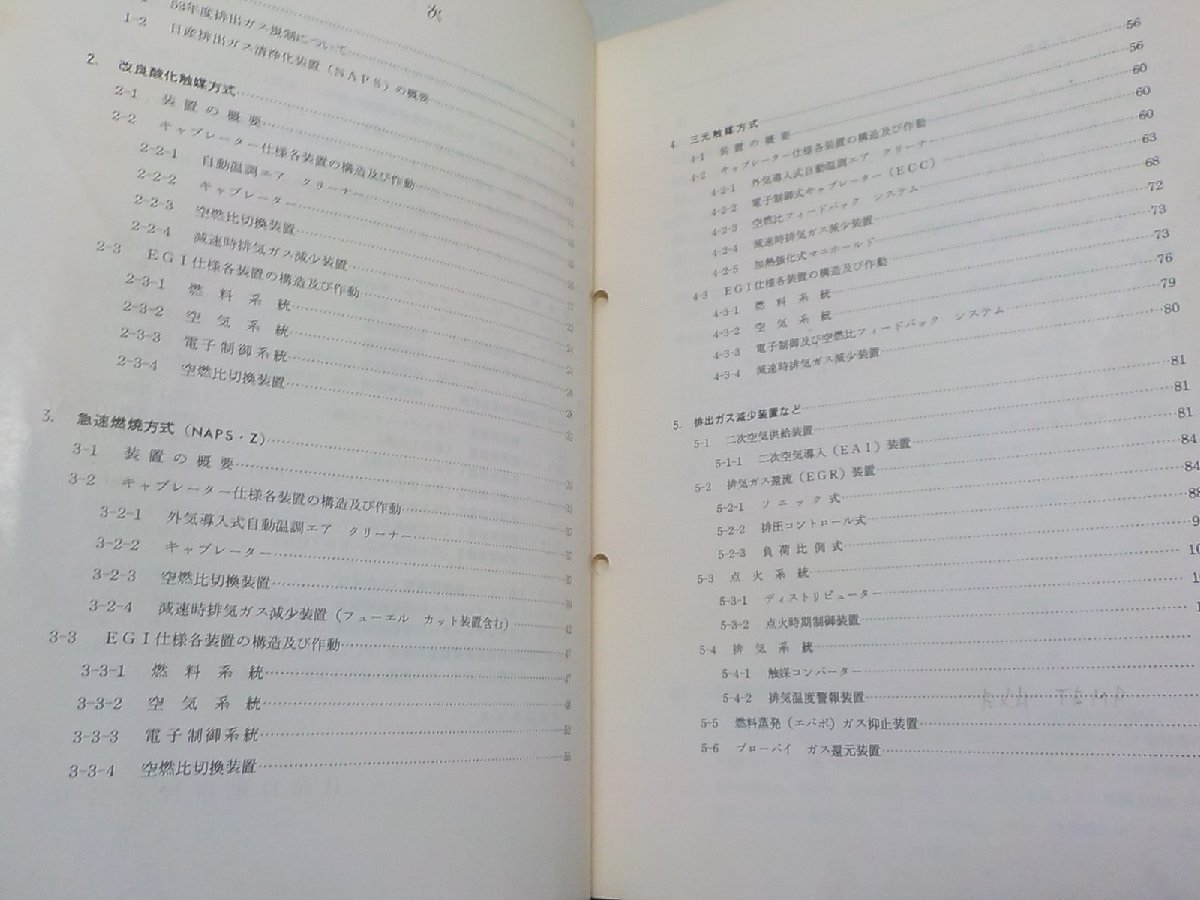 次
53年度排出ガス規制について
1-2 日産排出ガス清浄化装置（NAPS）の概要
2. 改良酸化触媒方式
2-1 装置の概要
2-2 キャブレーター仕様各装置の構造及び作動
2-2-1 自動温調エア クリーナー
2-2-2 キャブレーター
2-2-3 空燃比切換装置
2-2-4 減速時排気ガス減少装置
2-3 EGI仕様各装置の構造及び作動
2-3-1 燃料系統
2-3-2 空気系統
2-3-3 電子制御系統
2-3-4 空燃比切換装置
3. 急速燃焼方式（NAPS・Z）
3-1 装置の概要
3-2 キャブレーター仕様各装置の構造及び作動
3-2-1 外気導入式自動温調エア クリーナー
3-2-2 キャブレーター
3-2-3 空燃比切換装置
3-2-4 減速時排気ガス減少装置（フューエル カット装置含む）
3-3 EGI仕様各装置の構造及び作動 47
3-3-1 燃料系統 47
3-3-2 空気系統
3-3-3 電子制御系統
3-3-4 空燃比切換装置 55
4. 三元触媒方式 56
4-1 装置の概要 56
4-2 キャブレーター仕様各装置の構造及び作動 60
4-2-1 外気導入式自動温調エア クリーナー 60
4-2-2 電子制御式キャブレーター（ECC） 60
4-2-3 空燃比フィードバック システム 63
4-2-4 減速時排気ガス減少装置 68
4-2-5 加熱強化式マニホールド 72
4-3 EGI仕様各装置の構造及び作動 73
4-3-1 燃料系統 73
4-3-2 空気系統 76
4-3-3 電子制御及び空燃比フィードバック システム 79
4-3-4 減速時排気ガス減少装置 80
5. 排出ガス減少装置など 81
5-1 二次空気供給装置 81
5-1-1 二次空気導入（EAI）装置 81
5-2 排気ガス還流（EGR）装置 84
5-2-1 ソニック式 84
5-2-2 排圧コントロール式
5-2-3 負荷比例式
5-3 点火系統
5-3-1 ディストリビューター
5-3-2 点火時期制御装置
5-4 排気系統
5-4-1 触媒コンバーター
5-4-2 排気温度警報装置
5-5 燃料蒸発（エバポ）ガス抑止装置
5-6 ブローバイ ガス還元装置